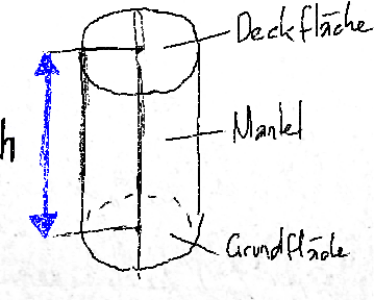 Deckfläche
Mantel
h
Grundfläche